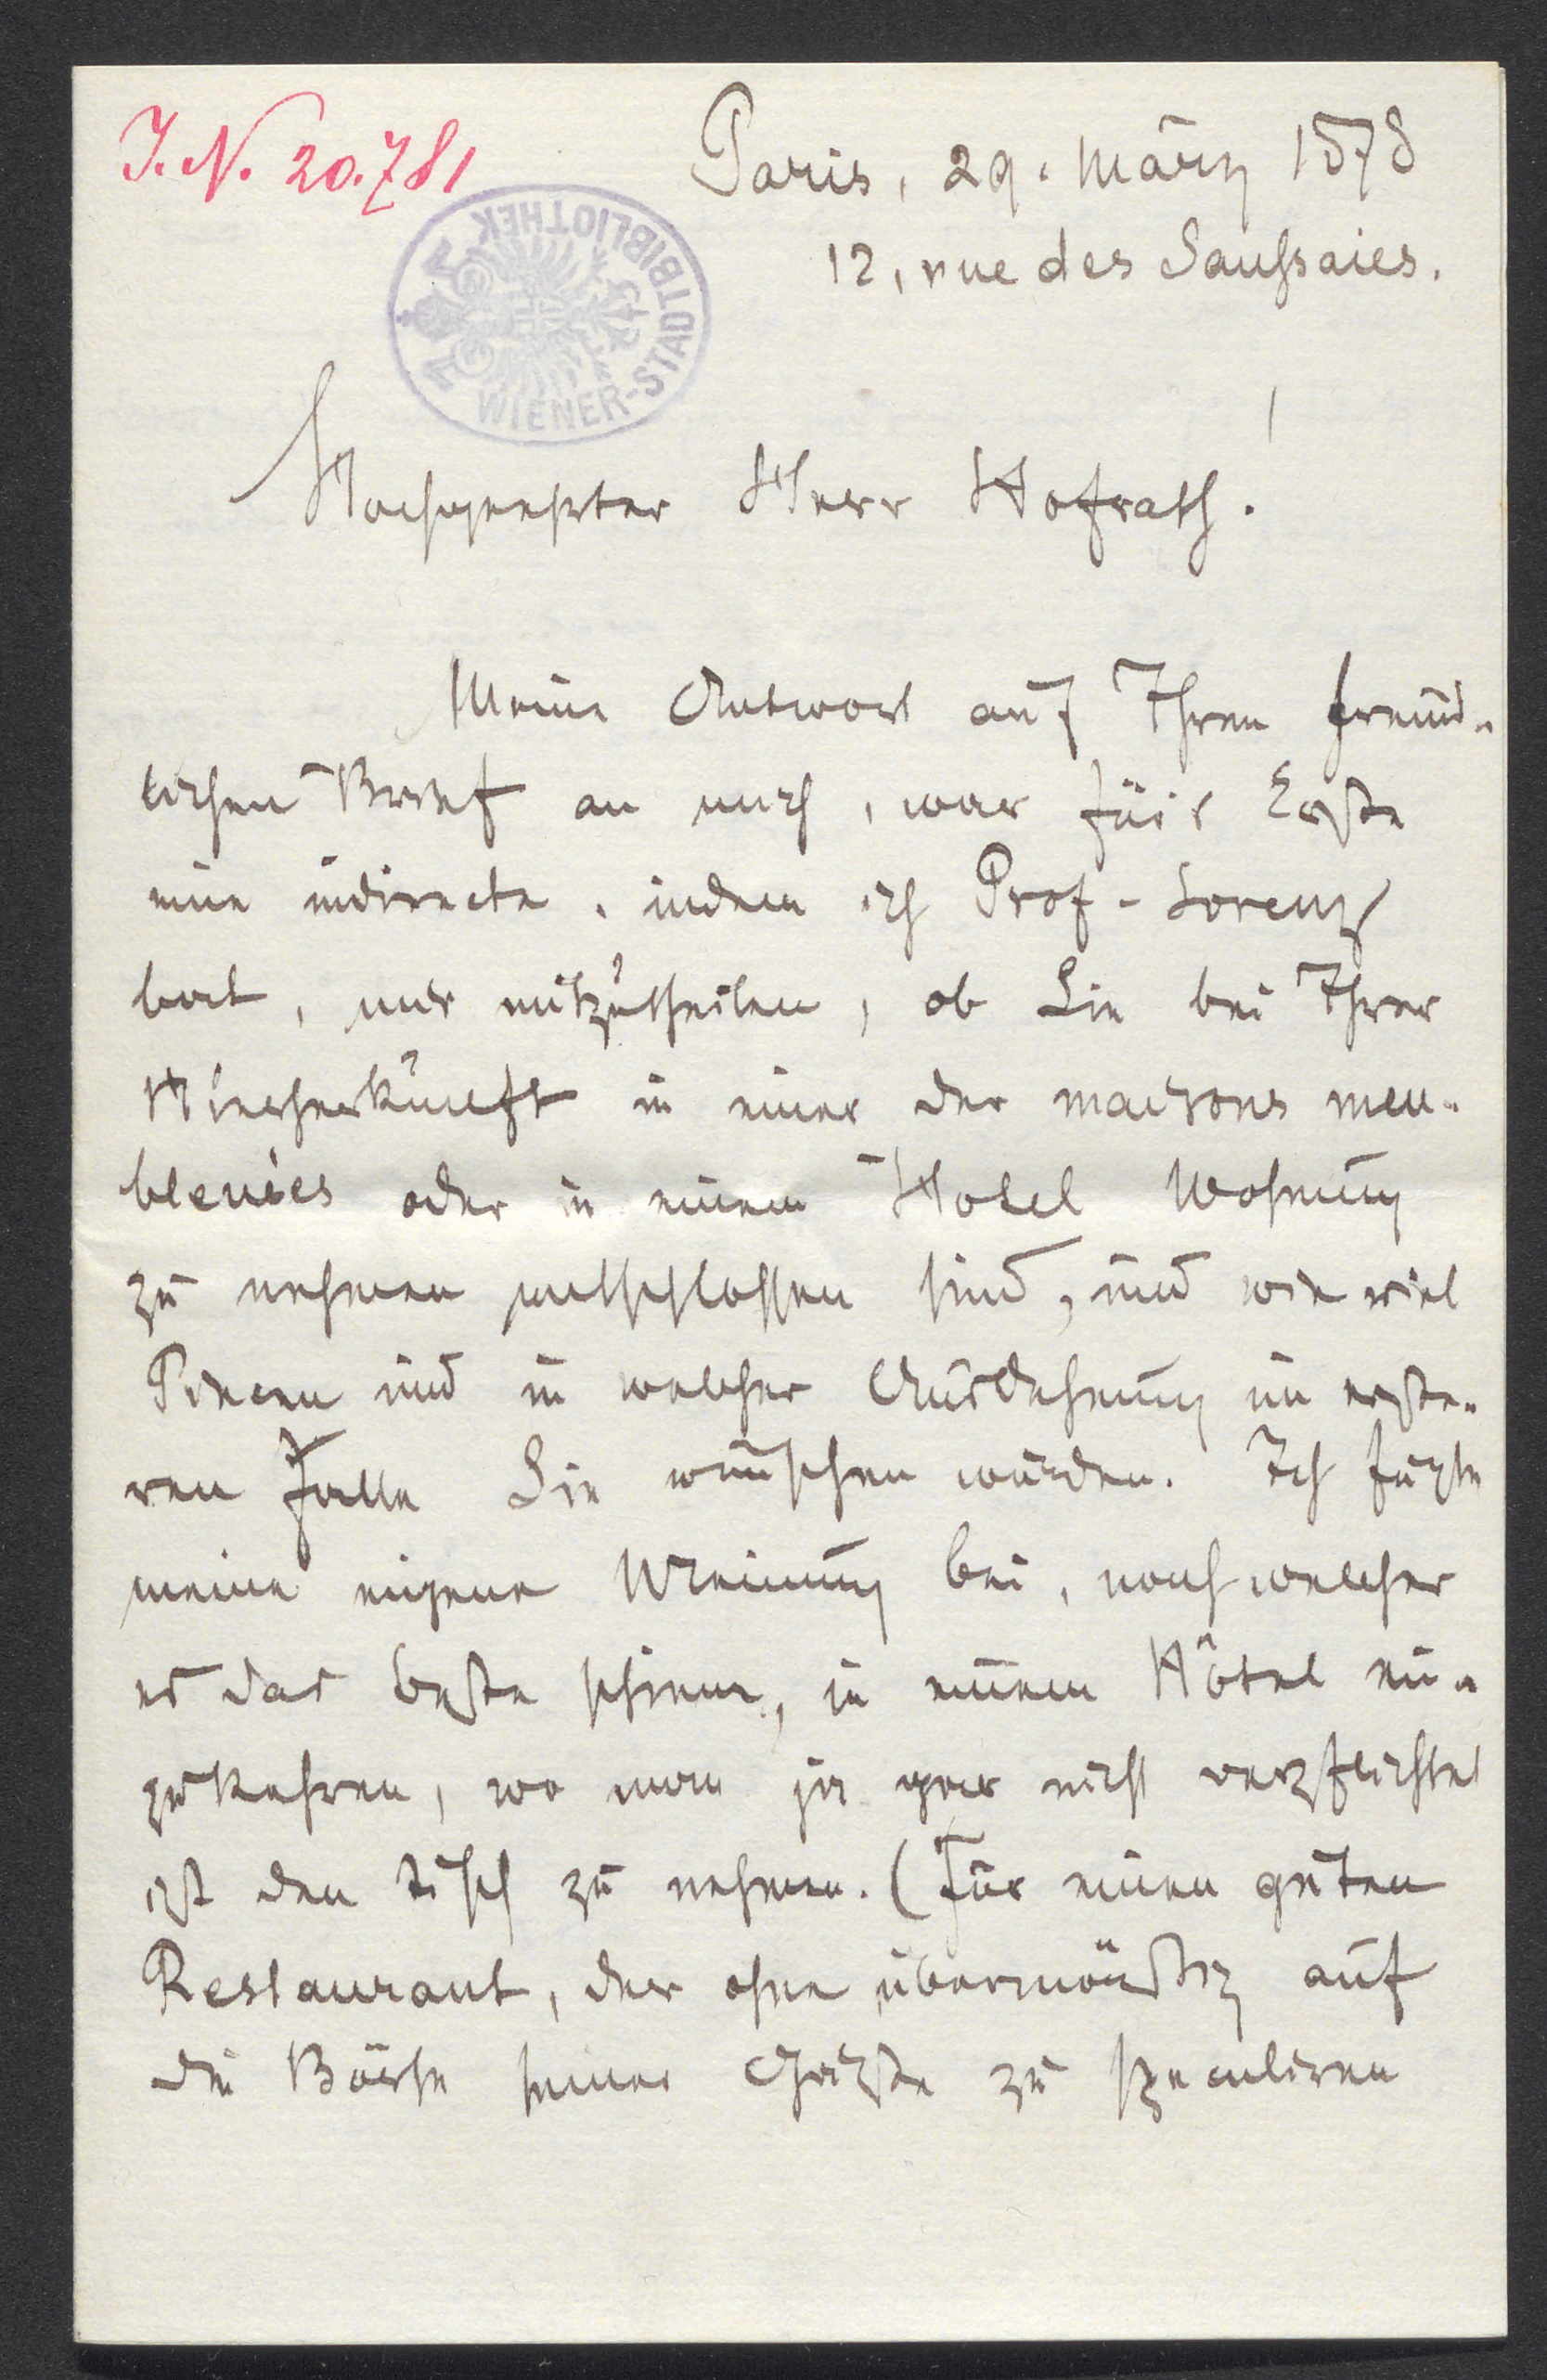 J. N. 20.781
WIENER-STADTBIBLIOTHEK
Paris, 29. März 1878
12, rue des Saussaies.
Hochgeehrter Herr Hofrath!
Meine Antwort auf Ihren freund-
lichen Brief an mich, war für's Erste
eine indirecte, indem ich Prof. Lorenz
bat, mir mitzutheilen, ob Sie bei Ihrer
Hierherkunft in einer der maisons meu-
bleuées oder in einem Hotel Wohnung
zu nehmen entschlossen sind, und wie viel
Piecen und in welcher Ausdehnung im erste-
ren Falle Sie wünschen würden. Ich fügte
meine eigene Meinung bei, nach welcher
es das beste schiene, in einem Hôtel ein-
zukehren, wo man ja gar nicht verpflichtet
ist den Tisch zu nehmen. (Für einen guten
Restaurant, der ohne übermäßig auf
die Börse seiner Gäste zu speculiren